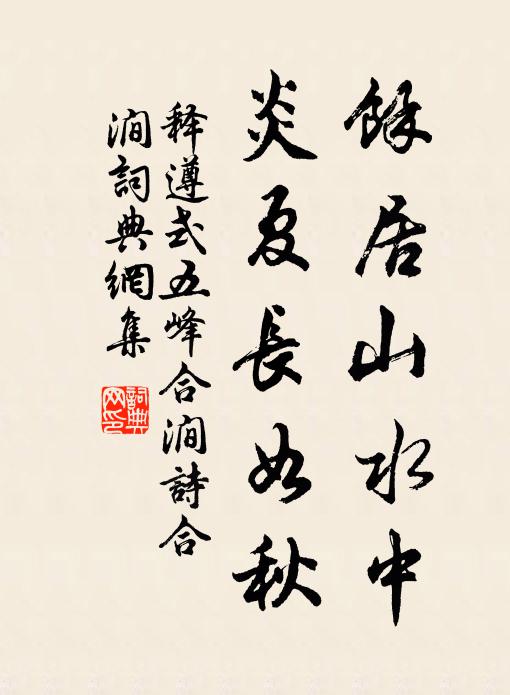 餘居山水中
炎夏長如秋
释遵式五峰合澗詩合
澗詞典網集
詞典網印